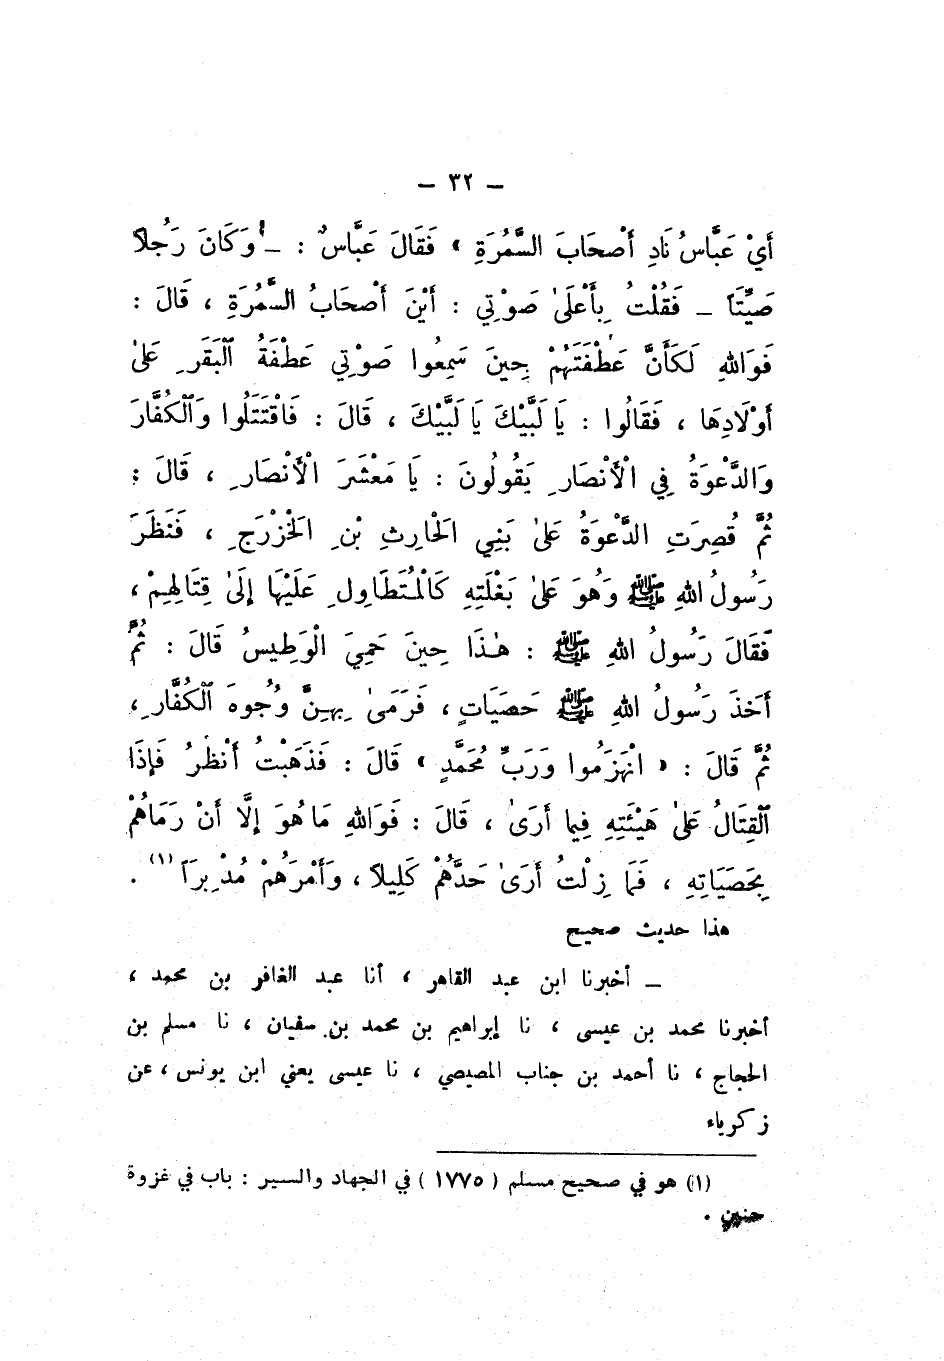 – ٣٢ –
أَيْ عَبَّاسُ نَادِ أَصْحَابَ السَّمُرَةِ » فَقَالَ عَبَّاسٌ : – وَكَانَ رَجُلاً
صَيِّتَاً – فَقُلْتُ بِأَعْلَىٰ صَوْتِي : أَيْنَ أَصْحَابُ السَّمُرَةِ ، قَالَ :
فَوَاللهِ لَكَأَنَّ عَطْفَتَهُمْ حِينَ سَمِعُوا صَوْتِي عَطْفَةُ ٱلْبَقَرِ عَلىٰ
أَوْلَادِهَا ، فَقَالُوا : يَا لَبَّيْكَ يَا لَبَّيْكَ ، قَالَ : فَاقْتَتَلُوا وَٱلْكُفَّارَ
وَالدَّعْوَةُ فِي الْأَنْصَارِ يَقُولُونَ : يَا مَعْشَرَ الْأَنْصَارِ ، قَالَ :
ثُمَّ قُصِرَتِ الدَّعْوَةُ عَلىٰ بَنِي الحَارِثِ بْنِ الخَزْرَجِ ، فَنَظَرَ
رَسُولُ اللهِ ﷺ وَهُوَ عَلىٰ بَغْلَتِهِ كَالْمُتَطَاوِلِ عَلَيْهَا إِلَىٰ قِتَالِهِمْ ،
فَقَالَ رَسُولُ اللهِ ﷺ : هٰذَا حِينَ حَمِيَ الْوَطِيسُ قَالَ : ثُمَّ
أَخَذَ رَسُولُ اللهِ ﷺ حَصَيَاتٍ ، فَرَمَىٰ بِهِنَّ وُجُوهَ ٱلْكُفَّارِ ،
ثُمَّ قَالَ : « انْهَزَمُوا وَرَبِّ مُحَمَّدٍ » قَالَ : فَذَهَبْتُ أَنْظُرُ فَإِذَا
ٱلْقِتَالُ عَلىٰ هَيْئَتِهِ فِيمَا أَرَىٰ ، قَالَ : فَوَاللهِ مَا هُوَ إِلَّا أَنْ رَمَاهُمْ
بِحَصَيَاتِهِ ، فَمَا زِلْتُ أَرَىٰ حَدَّهُمْ كَلِيلاً ، وَأَمْرَهُمْ مُدْبِرَاً (١) .
هذا حديث صحيح
– أخبرنا ابن عبد القاهر ، أنا عبد الغافر بن محمد ،
أخبرنا محمد بن عيسى ، نا إبراهيم بن محمد بن سفيان ، نا مسلم بن
الحجاج ، نا أحمد بن جناب المصيصي ، نا عيسى يعني ابن يونس ، عن
زكرياء
(١) هو في صحيح مسلم ( ١٧٧٥ ) في الجهاد والسير : باب في غزوة
حنين .